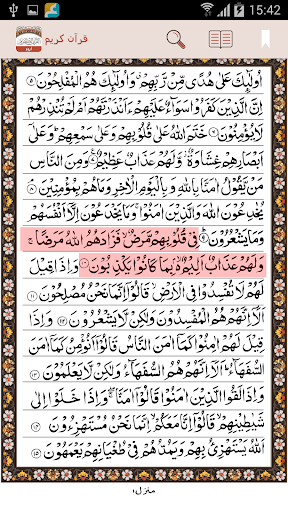 15:42
قرآن کریم
اُولٰٓئِكَ عَلٰى هُدًى مِّنْ رَّبِّهِمْ ۙ وَاُولٰٓئِكَ هُمُ الْمُفْلِحُوْنَ ۵
اِنَّ الَّذِيْنَ كَفَرُوْا سَوَآءٌ عَلَيْهِمْ ءَاَنْذَرْتَهُمْ اَمْ لَمْ تُنْذِرْهُمْ
لَا يُؤْمِنُوْنَ ۶ خَتَمَ اللّٰهُ عَلٰى قُلُوْبِهِمْ وَعَلٰى سَمْعِهِمْ ؕ وَعَلٰٓى
اَبْصَارِهِمْ غِشَاوَةٌ ؗ وَّلَهُمْ عَذَابٌ عَظِيْمٌ ۷ وَمِنَ النَّاسِ
مَنْ يَّقُوْلُ اٰمَنَّا بِاللّٰهِ وَبِالْيَوْمِ الْاٰخِرِ وَمَا هُمْ بِمُؤْمِنِيْنَ ۸
يُخٰدِعُوْنَ اللّٰهَ وَالَّذِيْنَ اٰمَنُوْا ۚ وَمَا يَخْدَعُوْنَ اِلَّاۤ اَنْفُسَهُمْ
وَمَا يَشْعُرُوْنَ ۹ فِيْ قُلُوْبِهِمْ مَّرَضٌ ۙ فَزَادَهُمُ اللّٰهُ مَرَضًا ۚ
وَلَهُمْ عَذَابٌ اَلِيْمٌۢ ۙ بِمَا كَانُوْا يَكْذِبُوْنَ ۱۰ وَاِذَا قِيْلَ
لَهُمْ لَا تُفْسِدُوْا فِي الْاَرْضِ ۙ قَالُوْۤا اِنَّمَا نَحْنُ مُصْلِحُوْنَ ۱۱
اَلَاۤ اِنَّهُمْ هُمُ الْمُفْسِدُوْنَ وَلٰكِنْ لَّا يَشْعُرُوْنَ ۱۲ وَاِذَا
قِيْلَ لَهُمْ اٰمِنُوْا كَمَاۤ اٰمَنَ النَّاسُ قَالُوْۤا اَنُؤْمِنُ كَمَاۤ اٰمَنَ
السُّفَهَآءُ ؕ اَلَاۤ اِنَّهُمْ هُمُ السُّفَهَآءُ وَلٰكِنْ لَّا يَعْلَمُوْنَ ۱۳
وَاِذَا لَقُوا الَّذِيْنَ اٰمَنُوْا قَالُوْۤا اٰمَنَّا ۖۚ وَاِذَا خَلَوْا اِلٰى
شَيٰطِيْنِهِمْ ۙ قَالُوْۤا اِنَّا مَعَكُمْ ۙ اِنَّمَا نَحْنُ مُسْتَهْزِءُوْنَ ۱۴
اَللّٰهُ يَسْتَهْزِئُ بِهِمْ وَيَمُدُّهُمْ فِيْ طُغْيَانِهِمْ يَعْمَهُوْنَ ۱۵
منزل۱